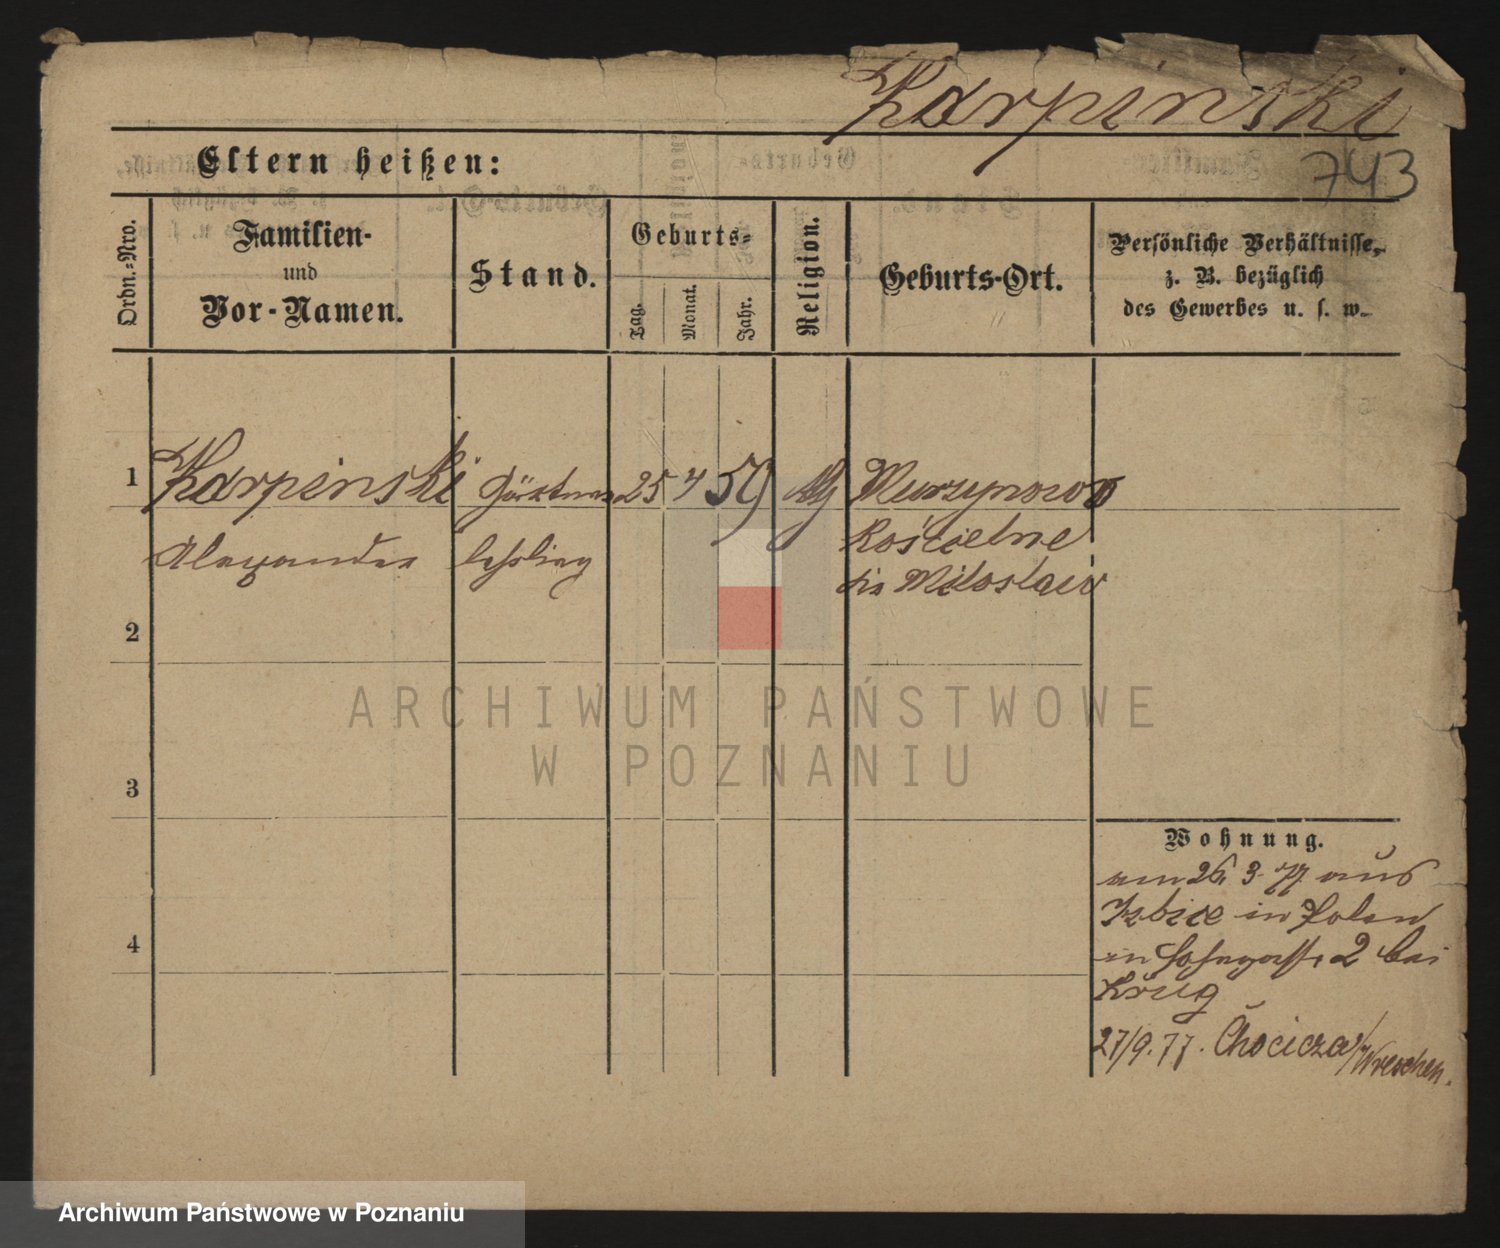 Karpinski
743
Eltern heißen:
Ordn.-Nro.
Familien-
und
Vor-Namen.
Stand.
Geburts-
Tag.
Monat.
Jahr.
Religion.
Geburts-Ort.
Persönliche Verhältnisse,
z. B. bezüglich
des Gewerbes u. s. w.
1 Karpinski Gärtner 25 4 59 Murzynowo
Alexander lehrling Kościelne
Miloslaw
2
3
4
ARCHIWUM PAŃSTWOWE
W POZNANIU
Wohnung.
am 26. 3. 77 aus
Izbice in Polen
in 2 bei
Krug
27/9. 77. Chocicza / Wreschen.
Archiwum Państwowe w Poznaniu